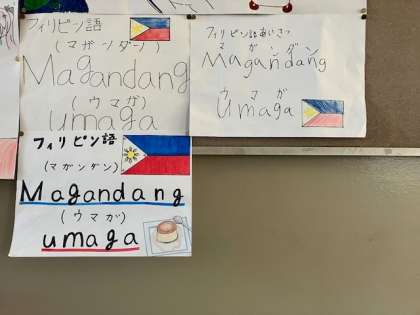 フィリピン語
(マガンダン)
Magandang
(ウマガ)
umaga
フィリピン語あいさつ
マガンダン
Magandang
ウマガ
Umaga
フィリピン語
(マガンダン)
Magandang
(ウマガ)
umaga